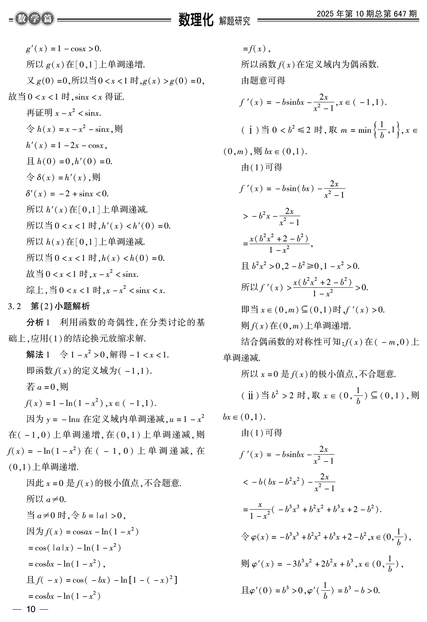 数学篇
数理化 解题研究
2025年第10期总第647期
g′(x)=1-cosx>0.
所以g(x)在[0,1]上单调递增.
又g(0)=0,所以当0<x<1时,g(x)>g(0)=0,
故当0<x<1时,sinx<x得证.
再证明x-x²<sinx.
令h(x)=x-x²-sinx,则
h′(x)=1-2x-cosx,
且h(0)=0,h′(0)=0.
令δ(x)=h′(x),则
δ′(x)=-2+sinx<0.
所以h′(x)在[0,1]上单调递减.
所以当0<x<1时,h′(x)<h′(0)=0.
所以h(x)在[0,1]上单调递减.
所以当0<x<1时,h(x)<h(0)=0.
故当0<x<1时,x-x²<sinx.
综上,当0<x<1时,x-x²<sinx<x.
3.2 第(2)小题解析
分析1 利用函数的奇偶性,在分类讨论的基
础上,应用(1)的结论换元放缩求解.
解法1 令1-x²>0,解得-1<x<1.
即函数f(x)的定义域为(-1,1).
若a=0,则
f(x)=1-ln(1-x²),x∈(-1,1).
因为y=-lnu在定义域内单调递减,u=1-x²
在(-1,0)上单调递增,在(0,1)上单调递减,则
f(x)=-ln(1-x²)在(-1,0)上单调递减,在
(0,1)上单调递增.
因此x=0是f(x)的极小值点,不合题意.
所以a≠0.
当a≠0时,令b=|a|>0,
因为f(x)=cosax-ln(1-x²)
=cos(|a|x)-ln(1-x²)
=cosbx-ln(1-x²),
且f(-x)=cos(-bx)-ln[1-(-x)²]
=cosbx-ln(1-x²)
=f(x),
所以函数f(x)在定义域内为偶函数.
由题意可得
f′(x)=-bsinbx-2x/(x²-1),x∈(-1,1).
(ⅰ)当0<b²≤2时,取m=min{1/b,1},x∈
(0,m),则bx∈(0,1).
由(1)可得
f′(x)=-bsin(bx)-2x/(x²-1)
>-b²x-2x/(x²-1)
=x(b²x²+2-b²)/(1-x²),
且b²x²>0,2-b²≥0,1-x²>0.
所以f′(x)>x(b²x²+2-b²)/(1-x²)>0.
即当x∈(0,m)⊆(0,1)时,f′(x)>0.
则f(x)在(0,m)上单调递增.
结合偶函数的对称性可知:f(x)在(-m,0)上
单调递减.
所以x=0是f(x)的极小值点,不合题意.
(ⅱ)当b²>2时,取x∈(0,1/b)⊆(0,1),则
bx∈(0,1).
由(1)可得
f′(x)=-bsinbx-2x/(x²-1)
<-b(bx-b²x²)-2x/(x²-1)
=x/(1-x²)(-b³x³+b²x²+b³x+2-b²).
令φ(x)=-b³x³+b²x²+b³x+2-b²,x∈(0,1/b),
则φ′(x)=-3b³x²+2b²x+b³,x∈(0,1/b),
且φ′(0)=b³>0,φ′(1/b)=b³-b>0.
— 10 —